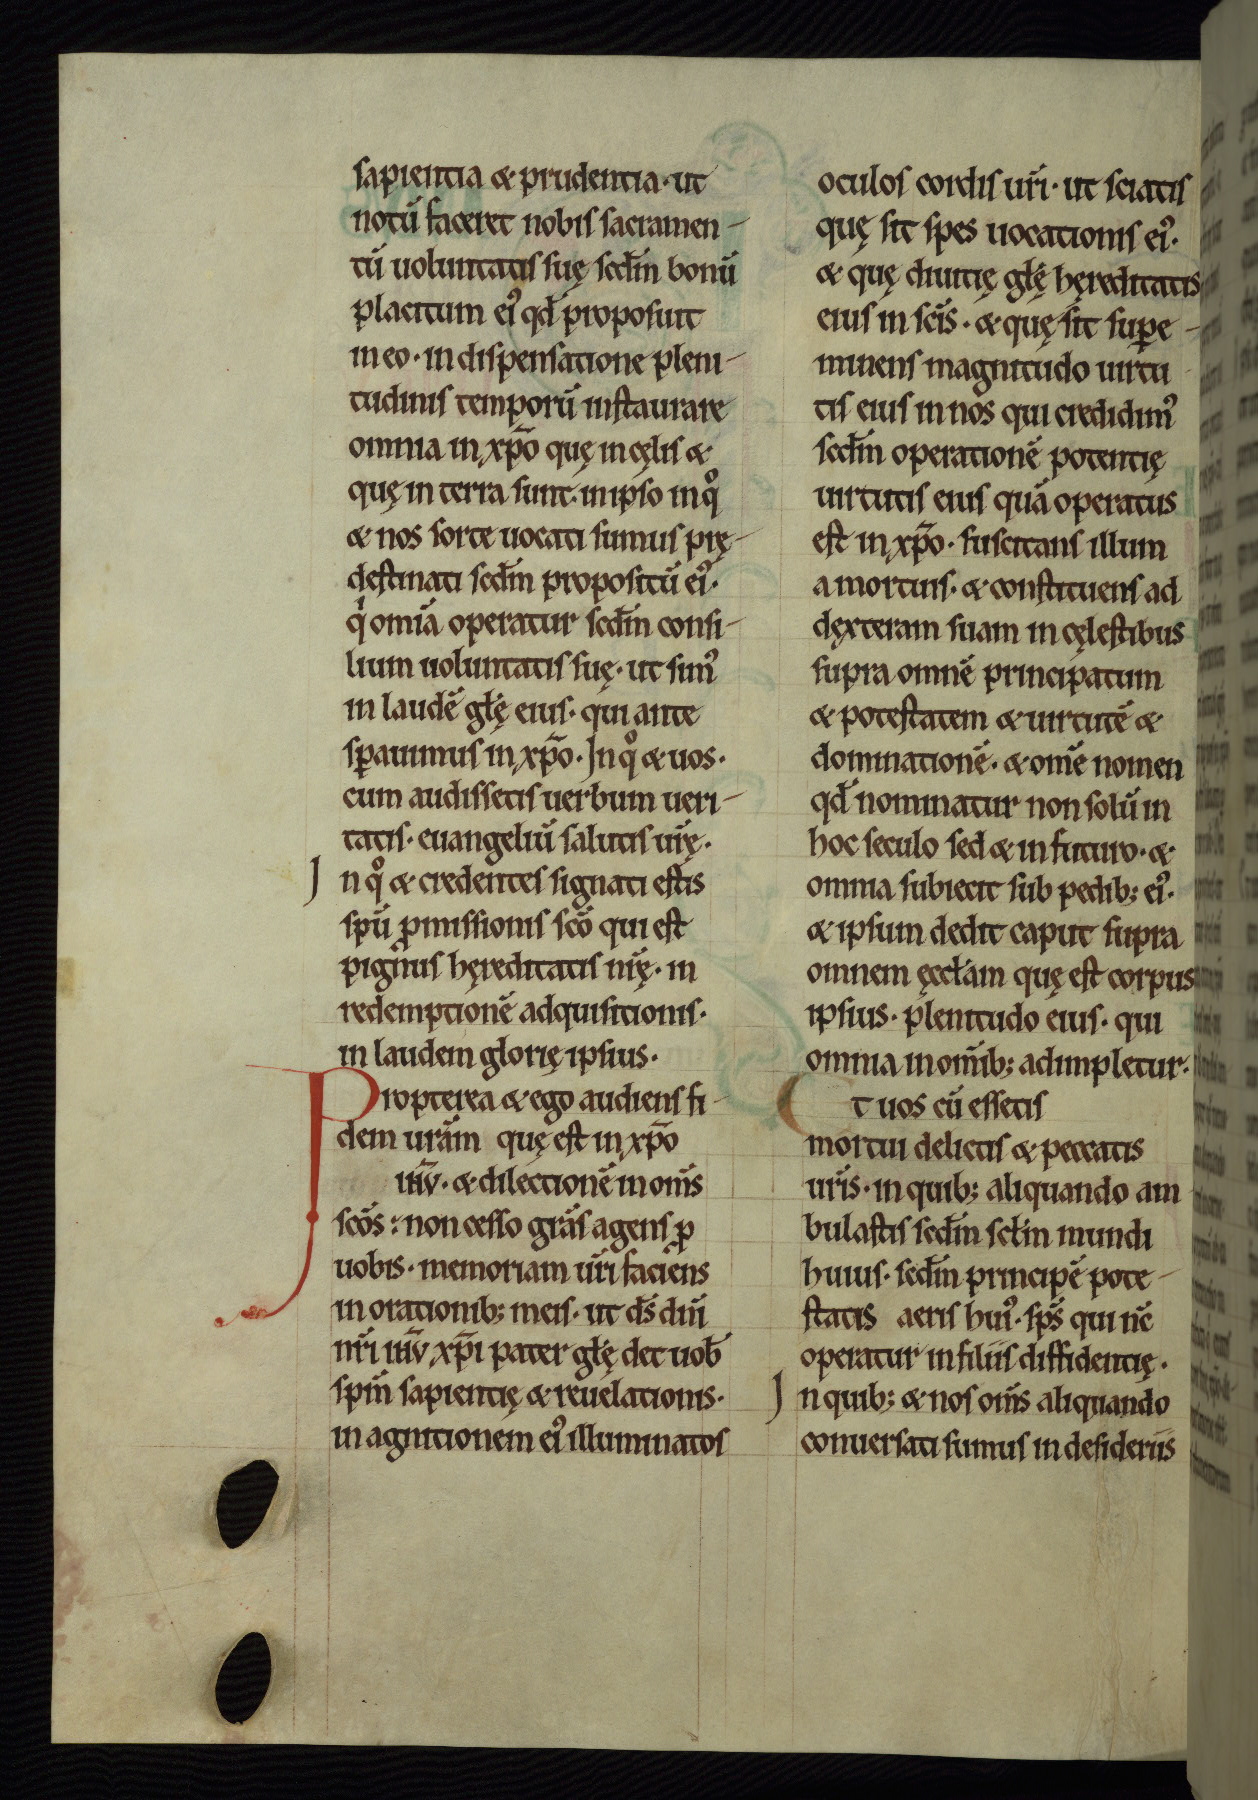 sapientia & prudentia· ut
notū faceret nobis sacramen-
tū uoluntatis suę scd̄m bonū
placitum ei᾽ qd̄ proposuit
in eo· in dispensatione pleni-
tudinis temporū instaurare
omnia in xp̄o quę in cęlis &
quę in terra sunt· in ipso in qͦ
& nos sorte uocati sumus prę-
destinati scd̄m propositū ei᾽·
qⁱ omīa operatur scd̄m consi-
lium uoluntatis suę· ut sim᾽
in laudē głę eius· qui ante
sꝑauimus in xp̄o· In qͦ & uos·
cum audissetis uerbum ueri-
tatis· euangeliū salutis ur̄ę·
In qͦ & credentes signati estis
spū ꝓmissionis scō qui est
pignus hęreditatis nr̄ę· in
redemptionē adquisitionis·
in laudem glorię ipsius·
Propterea & ego audiens fi-
dem urām quę est in xp̄o
ih̄v· & dilectionē in om̄s
scōs· non cesso grās agens ꝓ
uobis· memoriam ur̄i faciens
in orationib; meis· ut d̄s dn̄i
nr̄i ih̄v xp̄i pater głę det uob̄
spm̄ sapientię & reuelationis·
in agnitionem ei᾽ illuminatos
oculos cordis ur̄i· ut sciatis
quę sit spes uocationis ei᾽·
& quę diuitię głę hęreditatis
eius in scīs· & quę sit supe-
minens magnitudo uirtu
tis eius in nos qui credidim᾽
scd̄m operationē potentię
uirtutis eius quā operatus
est in xp̄o· suscitans illum
a mortuis· & constituens ad
dęxteram suam in cęlestibus
supra omnē principatum
& potestatem & uirtutē &
dominationē· & om̄e nomen
qd̄ nominatur non solū in
hoc seculo sed & in futuro· &
omnia subiecit sub pedib; ei᾽·
& ipsum dedit caput supra
omnem ęccłam quę est corpus
ipsius· plenitudo eius· qui
omnia in om̄ib; adimpletur·
t uos cū essetis
mortui delictis & peccatis
ur̄is· in quib; aliquando am
bulastis scd̄m scłm mundi
huius· scd̄m principē pote-
statis aeris hui᾽· sp̄s qui nc̄
operatur in filiis diffidentię·
In quib; & nos om̄s aliquando
conuersati sumus in desideriis